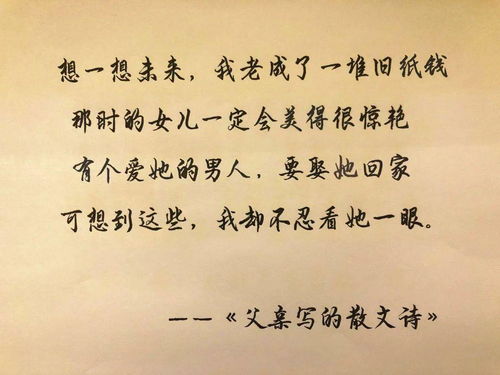 想一想未来，我老成了一堆旧纸钱
那时的女儿一定会美得很惊艳
有个爱她的男人，要娶她回家
可想到这些，我却不忍看她一眼。
——《父亲写的散文诗》